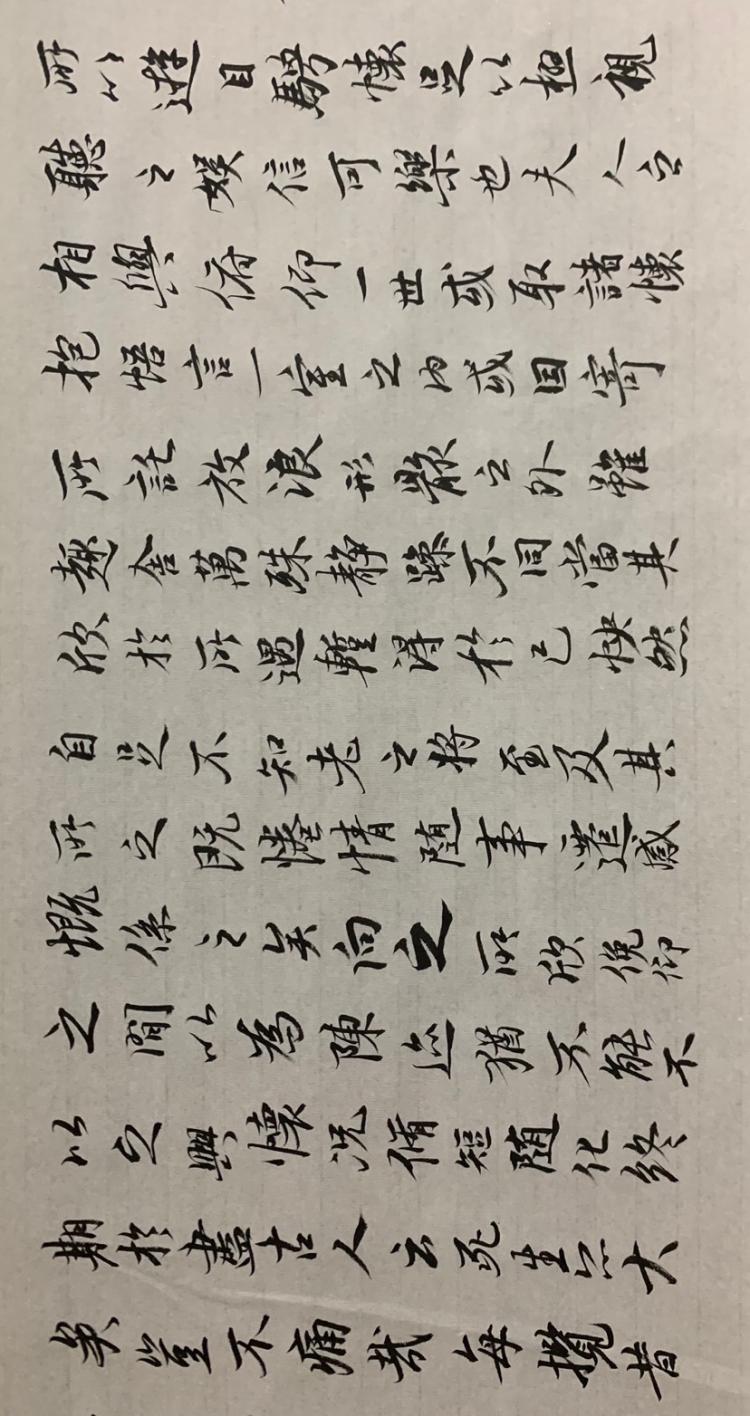 所以遊目騁懷足以極視
聽之娛信可樂也夫人之
相與俯仰一世或取諸懷
抱悟言一室之内或因寄
所託放浪形骸之外雖
趣舍萬殊静躁不同當其
欣於所遇暫得於己怏然
自足不知老之將至及其
所之既惓情随事遷感
慨係之矣向之所欣俛仰
之間以為陳迹猶不能不
以之興懷況脩短随化終
期於盡古人云死生亦大
矣豈不痛哉每攬昔